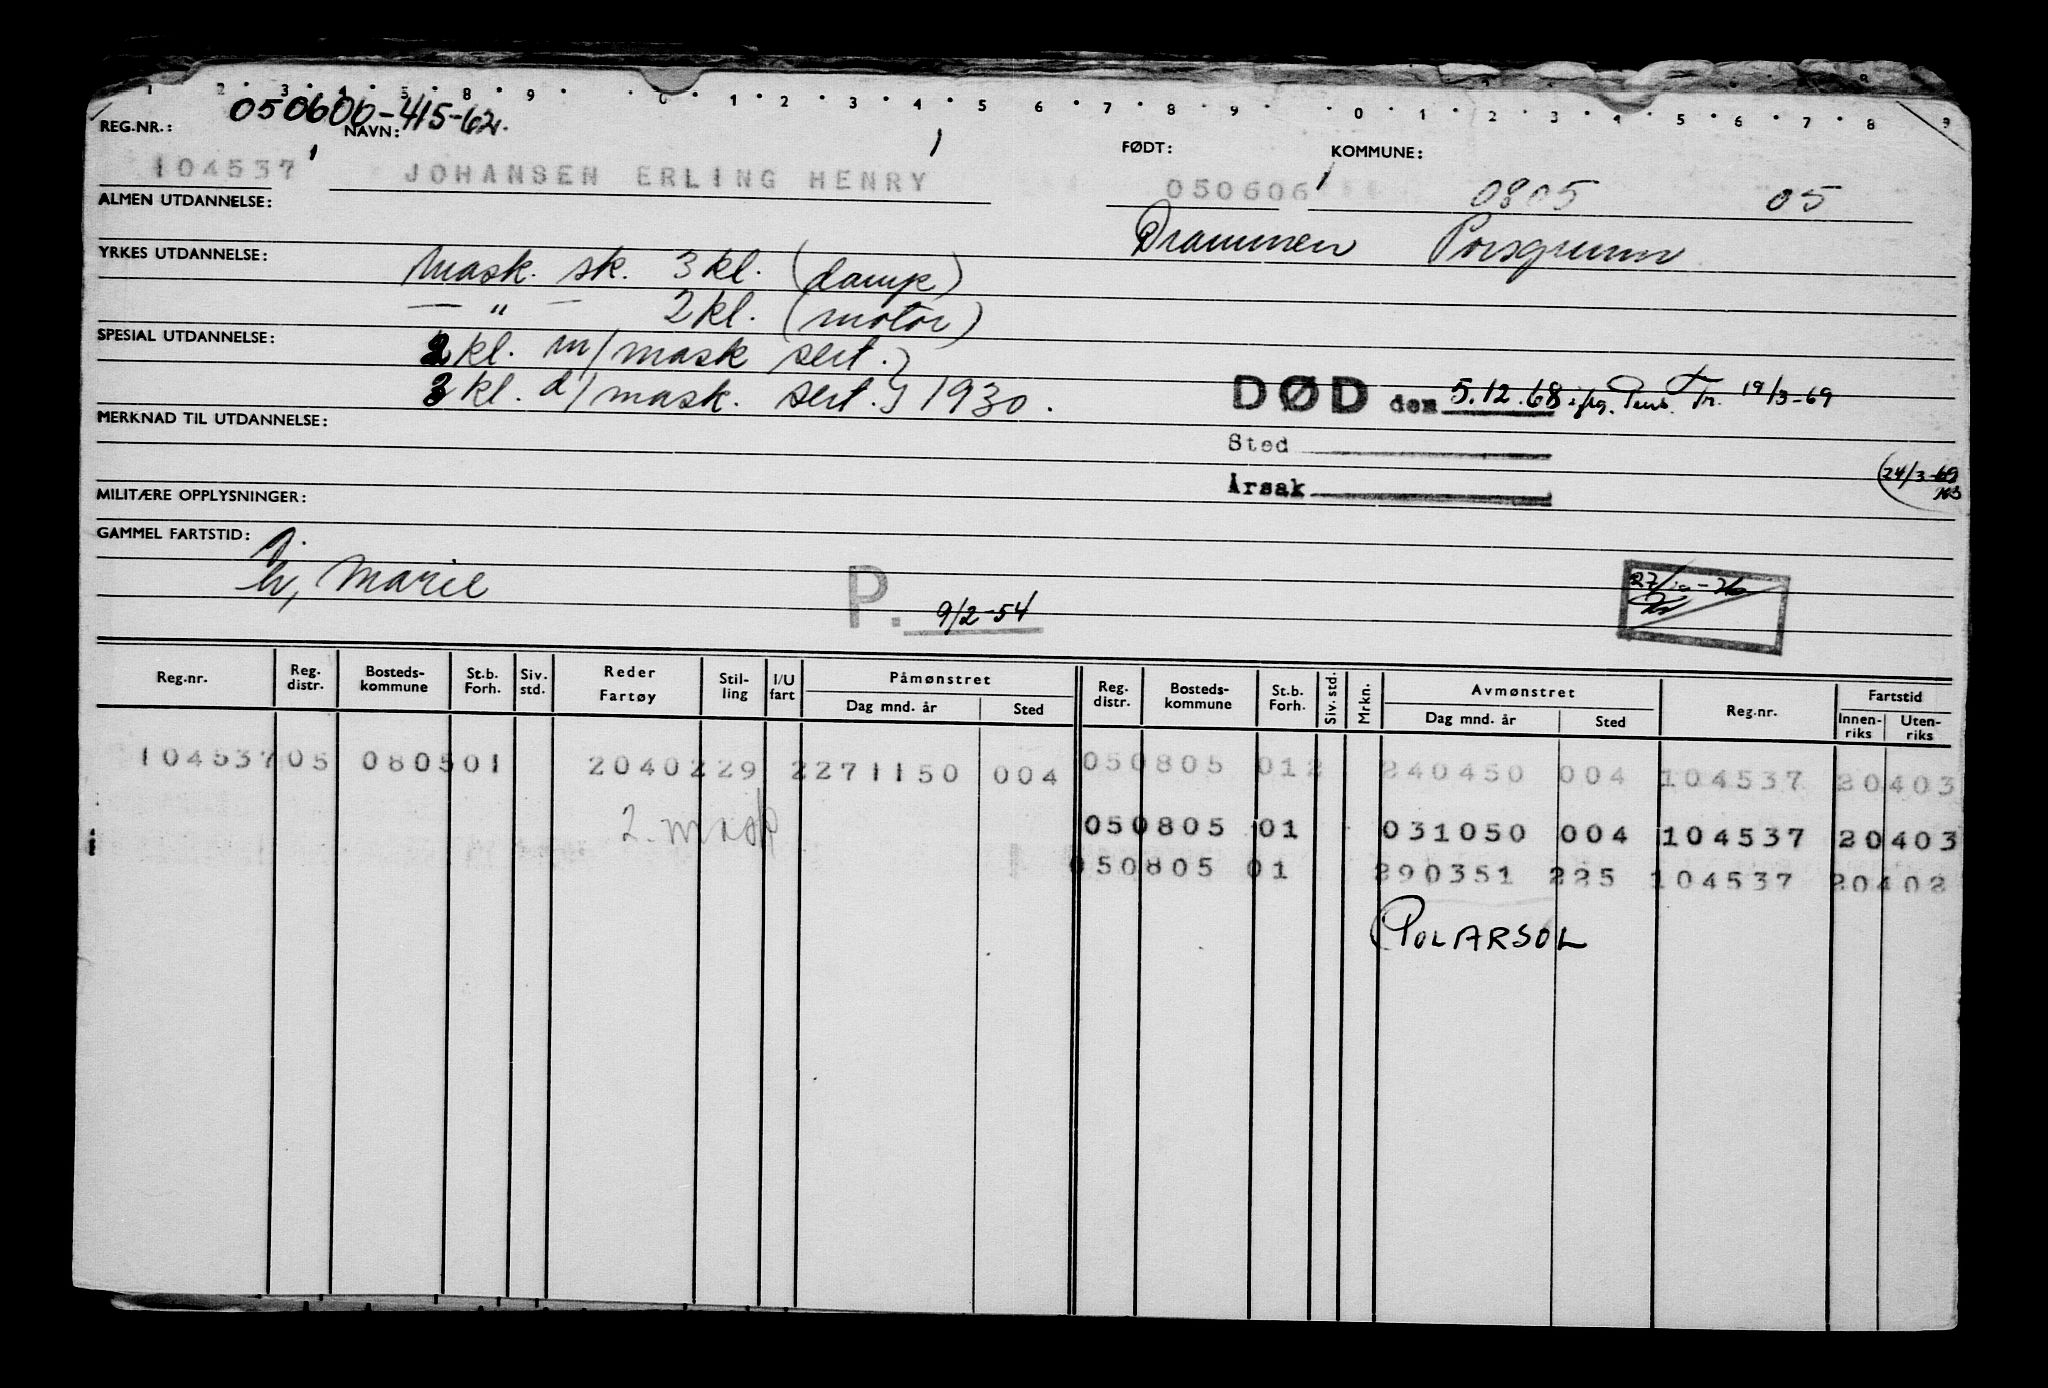 1 2 3 4 5 8 9 0 1 2 3 4 5 6 7 8 9 0 1 2 3 4 5 6 7 8 9
050606-415-62.
REG.NR.: NAVN: FØDT: KOMMUNE:
104537 JOHANSEN ERLING HENRY 050606 0805 05
ALMEN UTDANNELSE: Drammen Porsgrunn
YRKES UTDANNELSE: Mask. sk. 3 kl. (damp)
— " — 2 kl. (motor)
SPESIAL UTDANNELSE: 2 kl. m/mask sert.}
3 kl. d/mask. sert.} 1930.
DØD den 5.12.68 ifлg. Tr. 19/3-69
MERKNAD TIL UTDANNELSE:
Sted
Årsak
(24/3-69
MILITÆRE OPPLYSNINGER:
GAMMEL FARTSTID:
h, Marie
P. 9/2-54
Reg.nr. Reg. distr. Bosteds-kommune St.b. Forh. Siv. std. Reder Fartøy Stil-ling I/U fart Påmønstret Dag mnd. år Sted Reg. distr. Bosteds-kommune St.b. Forh. Siv. std. Mrkn. Avmønstret Dag mnd. år Sted Reg.nr. Fartstid Innen-riks Uten-riks
104537 05 0805 01 20402 29 2 271150 004 05 0805 012 240450 004 104537 20403
2. mask
05 0805 01 031050 004 104537 20403
05 0805 01 290351 225 104537 20402
POLARSOL